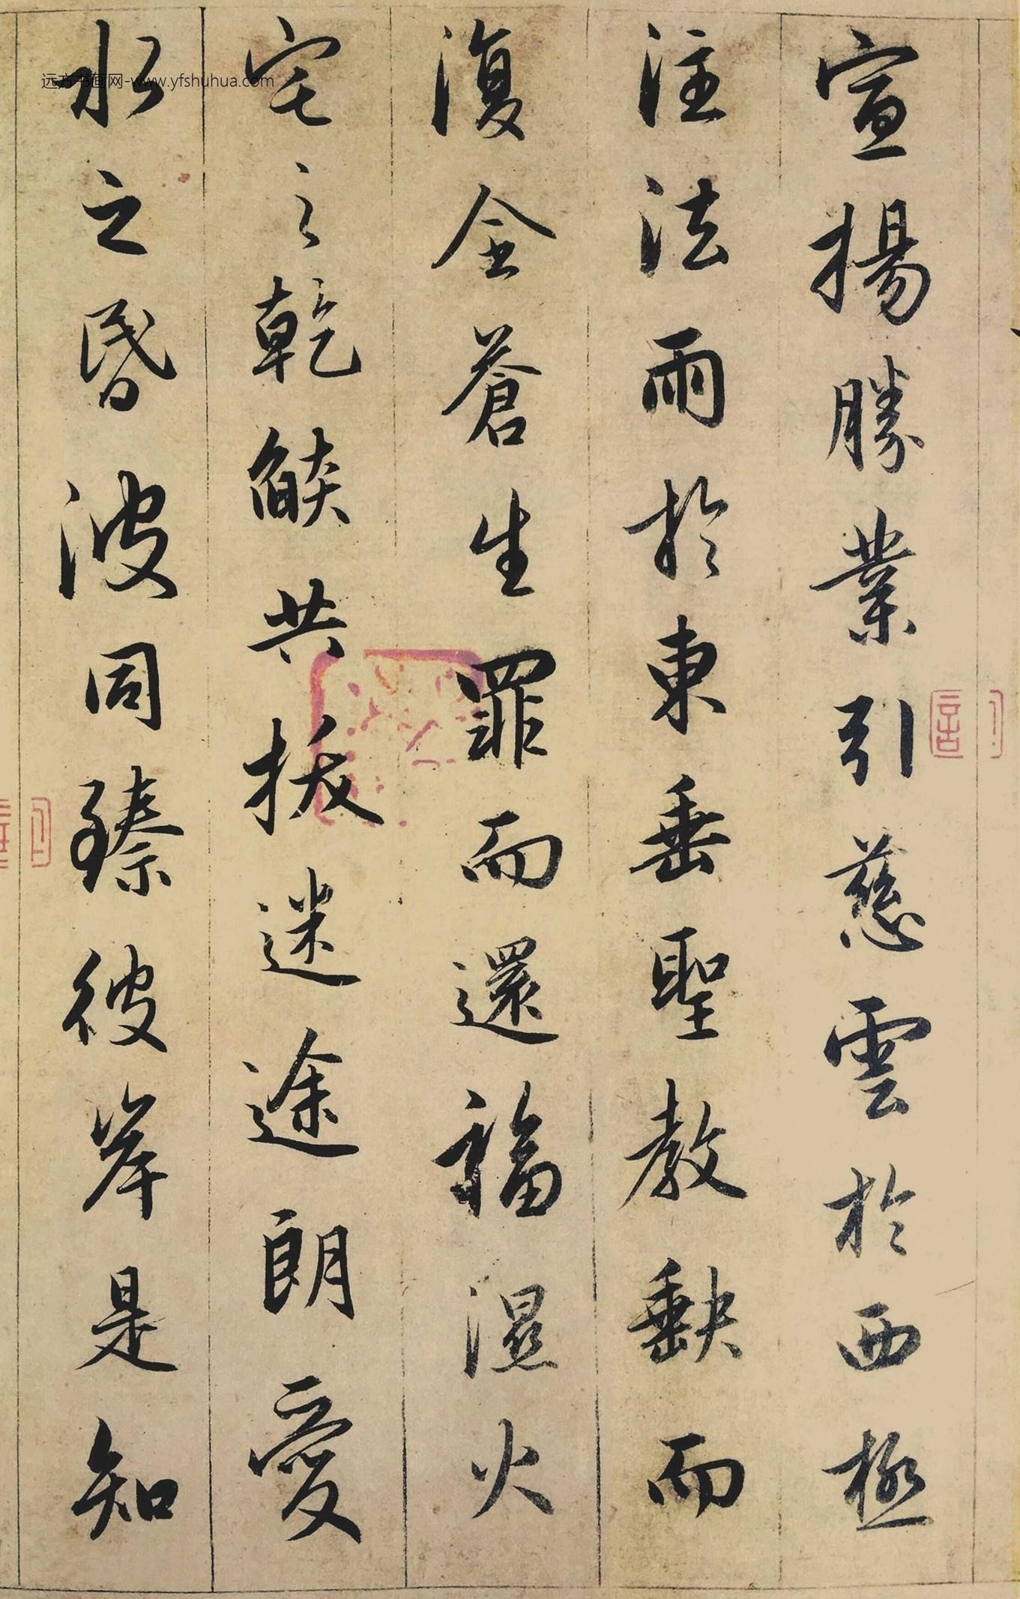 宣揚勝業引慈雲於西極
注法雨於東垂聖教缺而
復全蒼生罪而還福濕火
宅之乾燄共拔迷途朗愛
水之昏波同臻彼岸是知
远方书画网-www.yfshuhua.com